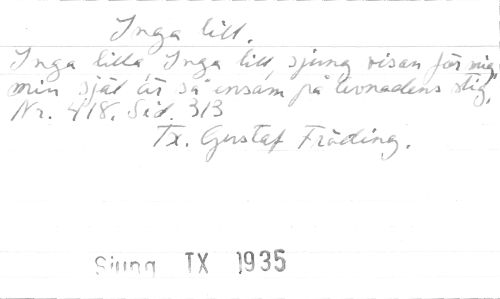 Inga lill.
Inga lilla Inga lill, sjung visan för mig,
min själ är så ensam på levnadens stig.
Nr. 418. Sid. 313
Tx. Gustaf Fröding.
Sjung TX 1935